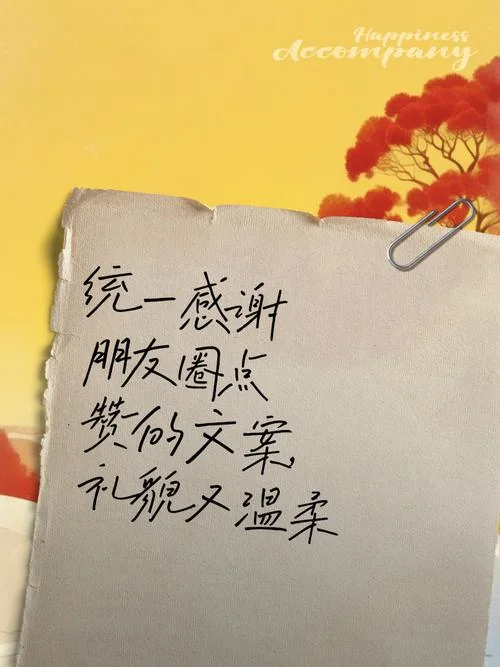 Happiness
Accompany
统一感谢
朋友圈点
赞的文案,
礼貌又温柔